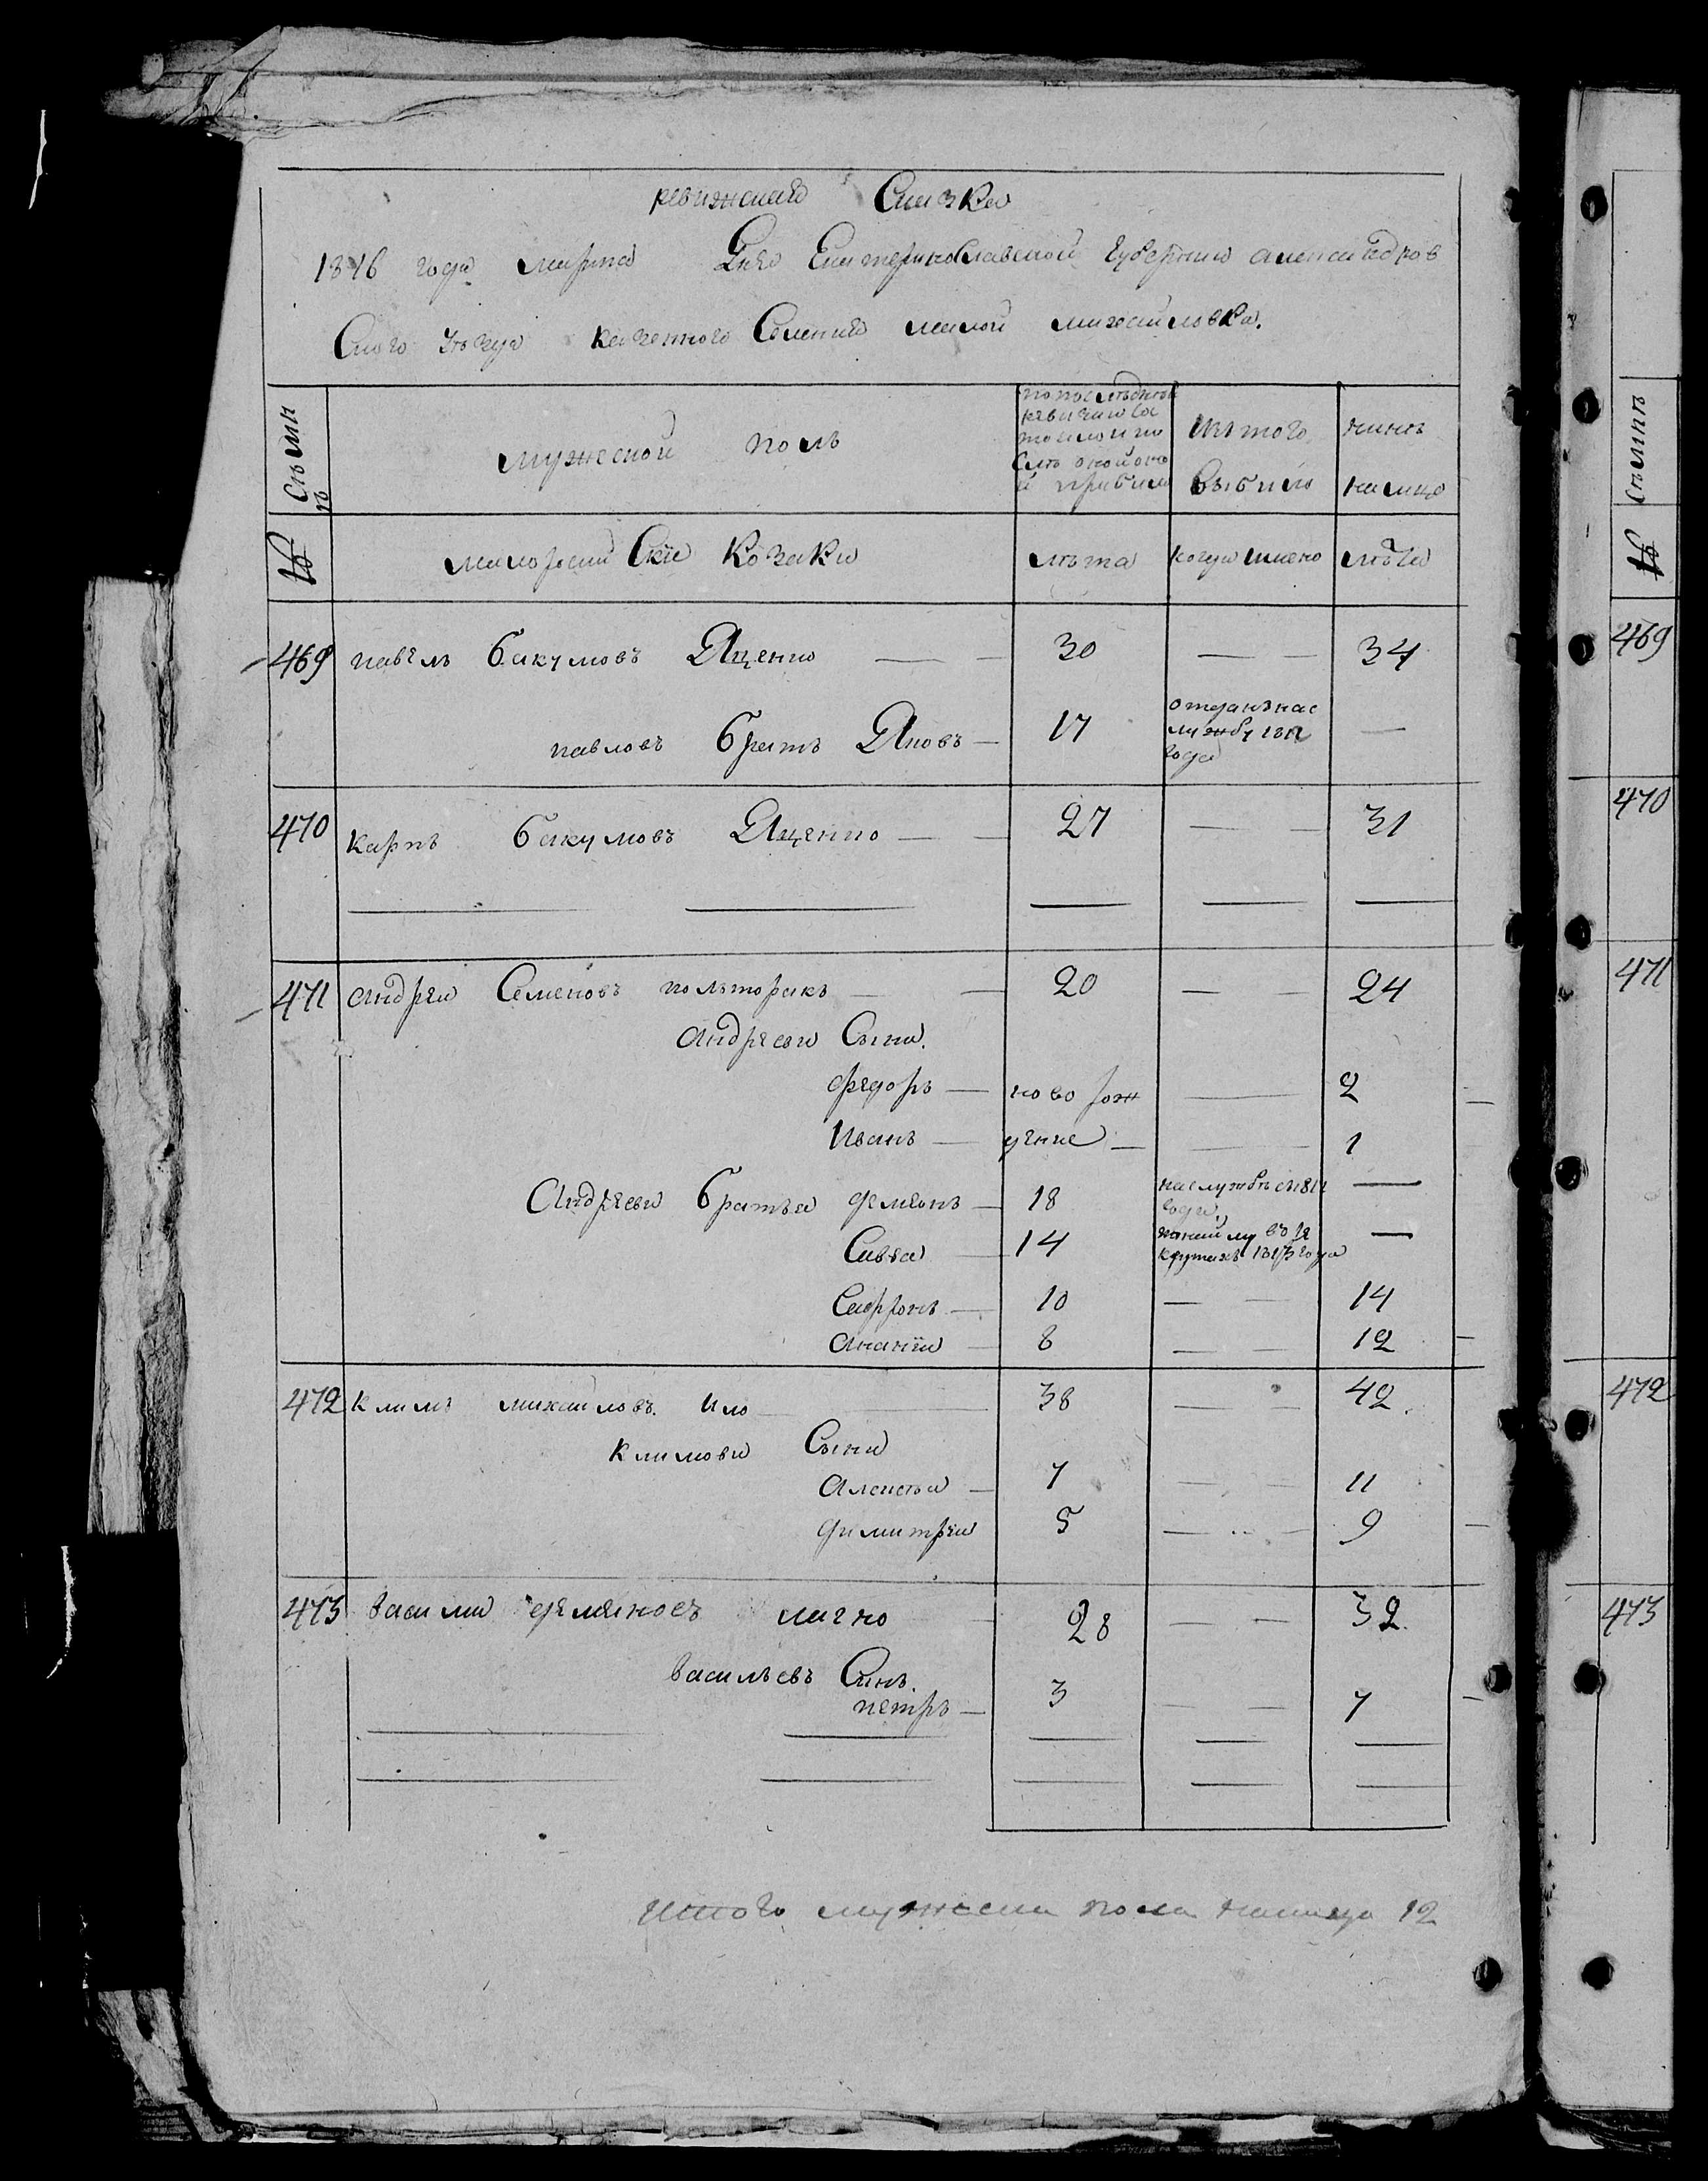 ревижская Сказка
1816 года марта Дня Екатеринославской Губернии александров
Ского уъзда казенного Селения малой михайловки.
Съмьи
мужеской полъ
по последней ревизии со тояло и по слъ оной оно й прибыло
изъ того выбыло
нынъ на лицо
№
малоросийСкїе Козаки
лъта
когда имено
лъта
469 павелъ бакумовъ Яценко — — 30 — — 34
павловъ братъ Яковъ — 17 отданънас лужбу 1812 года —
470 карпъ бакумовъ Яценко — — 27 — — 31
471 андреи Семеновъ полторакъ — — 20 — — 24
андреевы Сыни.
федоръ — ново рож — 2
Иванъ — дение — — 1
Андреевы братья демянъ — 18 наслужбъ съ1812 года —
Савва — 14 1813 года —
Сафронъ — 10 — — 14
ананїи — 8 — — 12
472 климъ михаиловъ. Ило — 38 — 42
климови Сыни
алексъи — 7 — — 11
димитреи 5 — — 9
473 василии демяновъ личко — 28 — — 32
васильевъ Синъ.
петръ — 3 — — 7
Итого мужеска пола налицо 12
Съмьпъ
№
469
470
471
472
473